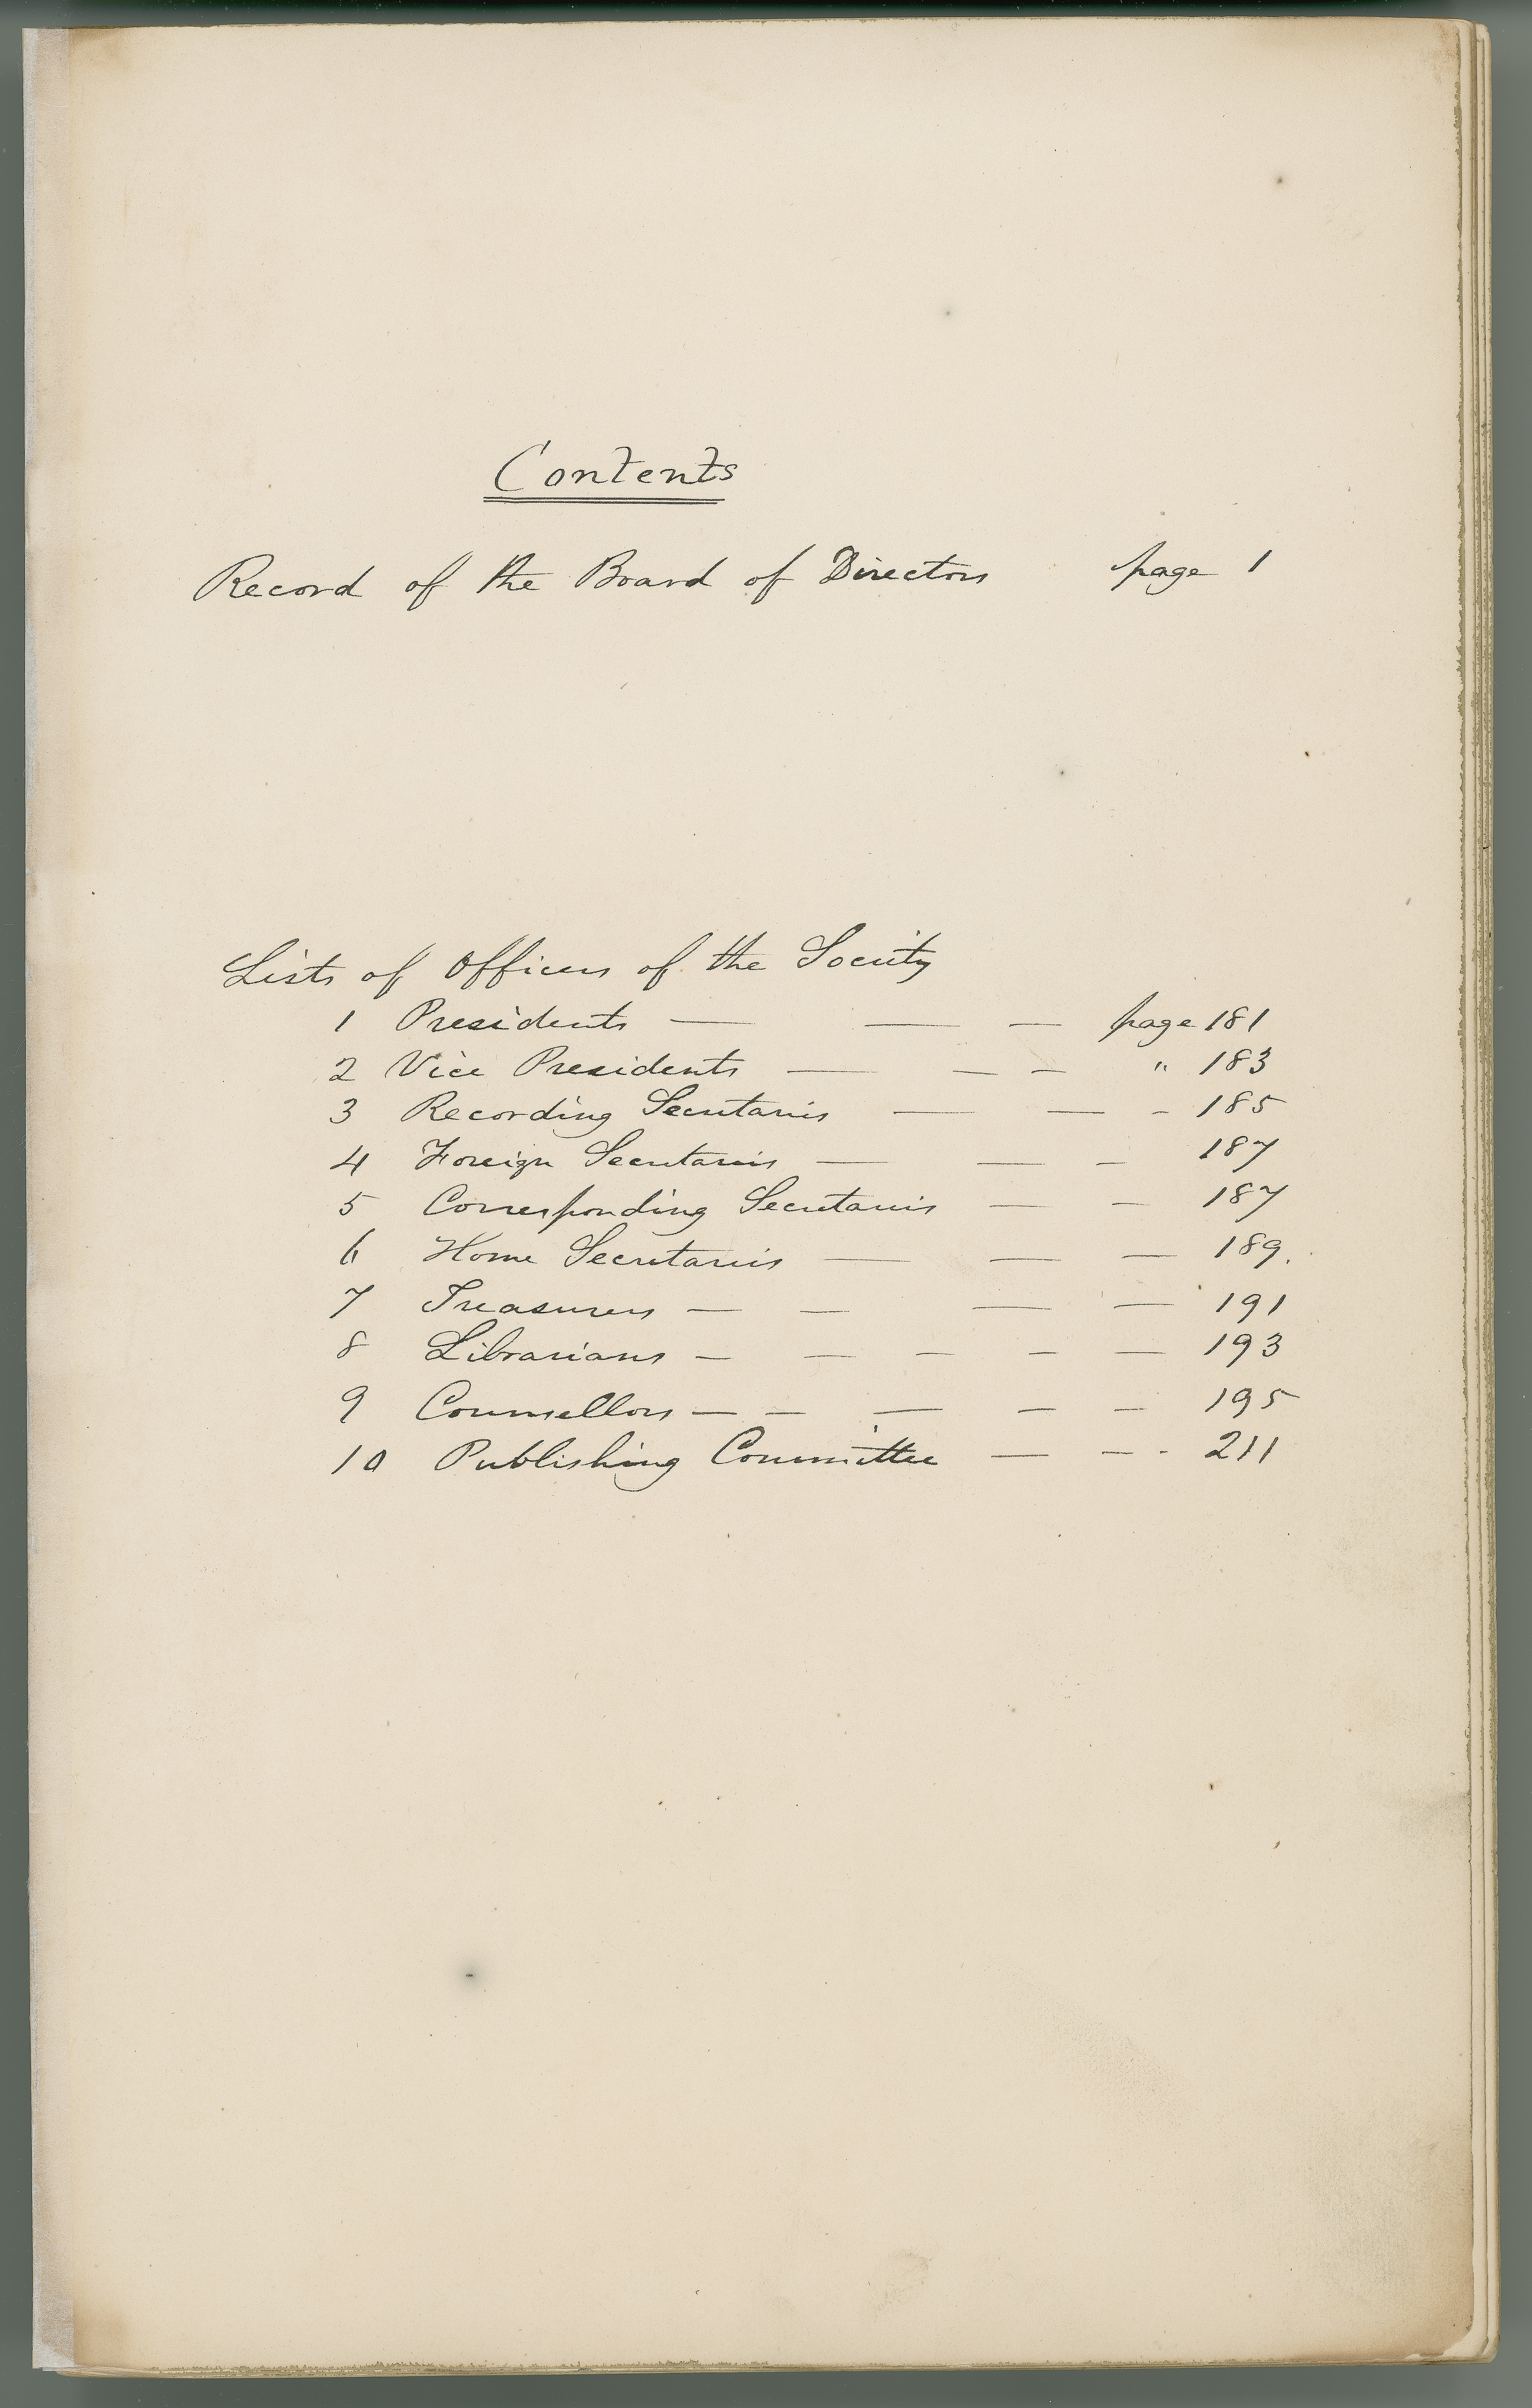 Contents
Record of the Board of Directors page 1
Lists of Officers of the Society
1 Presidents — — — page 181
2 Vice Presidents — — — " 183
3 Recording Secretaries — — - 185
4 Foreign Secretaries — — — 187
5 Corresponding Secretaries — — 187
6 Home Secretaries — — — 189.
7 Treasurers — — — — 191
8 Librarians — — — — — 193
9 Counsellors — — — — — 195
10 Publishing Committee — — - 211